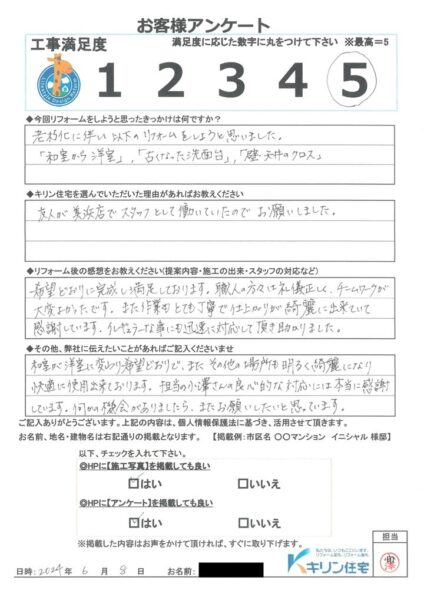 お客様アンケート
工事満足度
満足度に応じた数字に丸をつけて下さい ※最高=5
1 2 3 4 5
◆今回リフォームをしようと思ったきっかけは何ですか?
老朽化に伴い以下のリフォームをしようと思いました。
「和室から洋室」,「古くなった洗面台」,「壁・天井のクロス」
◆キリン住宅を選んでいただいた理由があればお教えください
友人が美浜店でスタッフとして働いていたのでお願いしました。
◆リフォーム後の感想をお教えください(提案内容・施工の出来・スタッフの対応など)
希望どおりに完成し満足しております。職人の方々は礼儀正しく、チームワークが
大変よかったです。また作業もとても丁寧で仕上がりが綺麗に出来ていて
感謝しています。イレギュラーな事にも迅速に対応して頂き助かりました。
◆その他、弊社に伝えたいことがあればご記入くださいませ
和室が洋室に変わり希望どおりで、またその他の場所も明るく綺麗になり
快適に使用出来ております。担当の小澤さんの良心的な対応には本当に感謝
しています。何かの機会がありましたら、またお願いしたいと思っています。
ご記入ありがとうございます。上記の内容は、個人情報保護法に基づき、活用させて頂きます。
お名前、地名・建物名は右記通りの掲載となります。 【掲載例:市区名 〇〇マンション イニシャル 様邸】
以下、チェックを入れて下さい。
◎HPに【施工写真】を掲載しても良い
はい いいえ
◎HPに【アンケート】を掲載しても良い
はい いいえ
※掲載した内容はお声をかけて頂ければ、すぐに取り下げます。
キリン住宅
担当
日時:2024年 6月 8日 お名前: